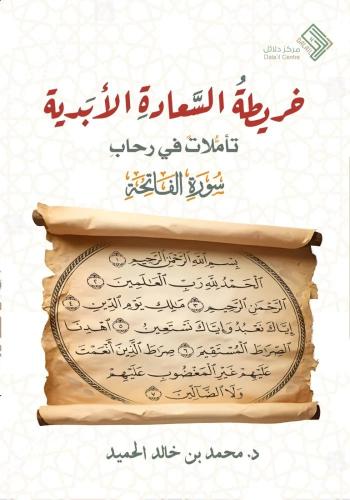 مركز دلائل
Dala'il Centre
خريطةُ السَّعادةِ الأبَدية
تأملات في رحاب
سُورَة الفَاتِحَة
بِسْمِ اللَّهِ الرَّحْمَنِ الرَّحِيمِ ١
الْحَمْدُ لِلَّهِ رَبِّ الْعَالَمِينَ ٢
الرَّحْمَنِ الرَّحِيمِ ٣ مَالِكِ يَوْمِ الدِّينِ ٤
إِيَّاكَ نَعْبُدُ وَإِيَّاكَ نَسْتَعِينُ ٥ اهْدِنَا
الصِّرَاطَ الْمُسْتَقِيمَ ٦ صِرَاطَ الَّذِينَ أَنْعَمْتَ
عَلَيْهِمْ غَيْرِ الْمَغْضُوبِ عَلَيْهِمْ
وَلَا الضَّالِّينَ ٧
د. محمد بن خالد الحميد